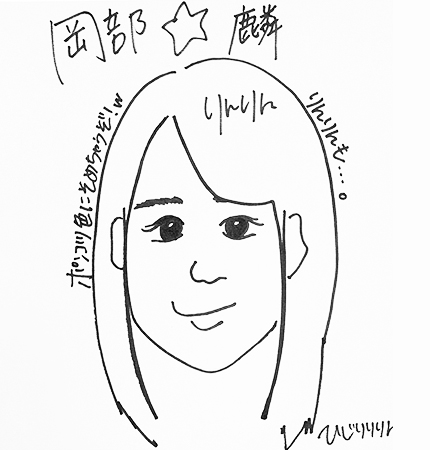 岡部☆麟
りんりん
りんりんも...。
ポンコツ色にそめちゃうぞ!w
ひじりりりん